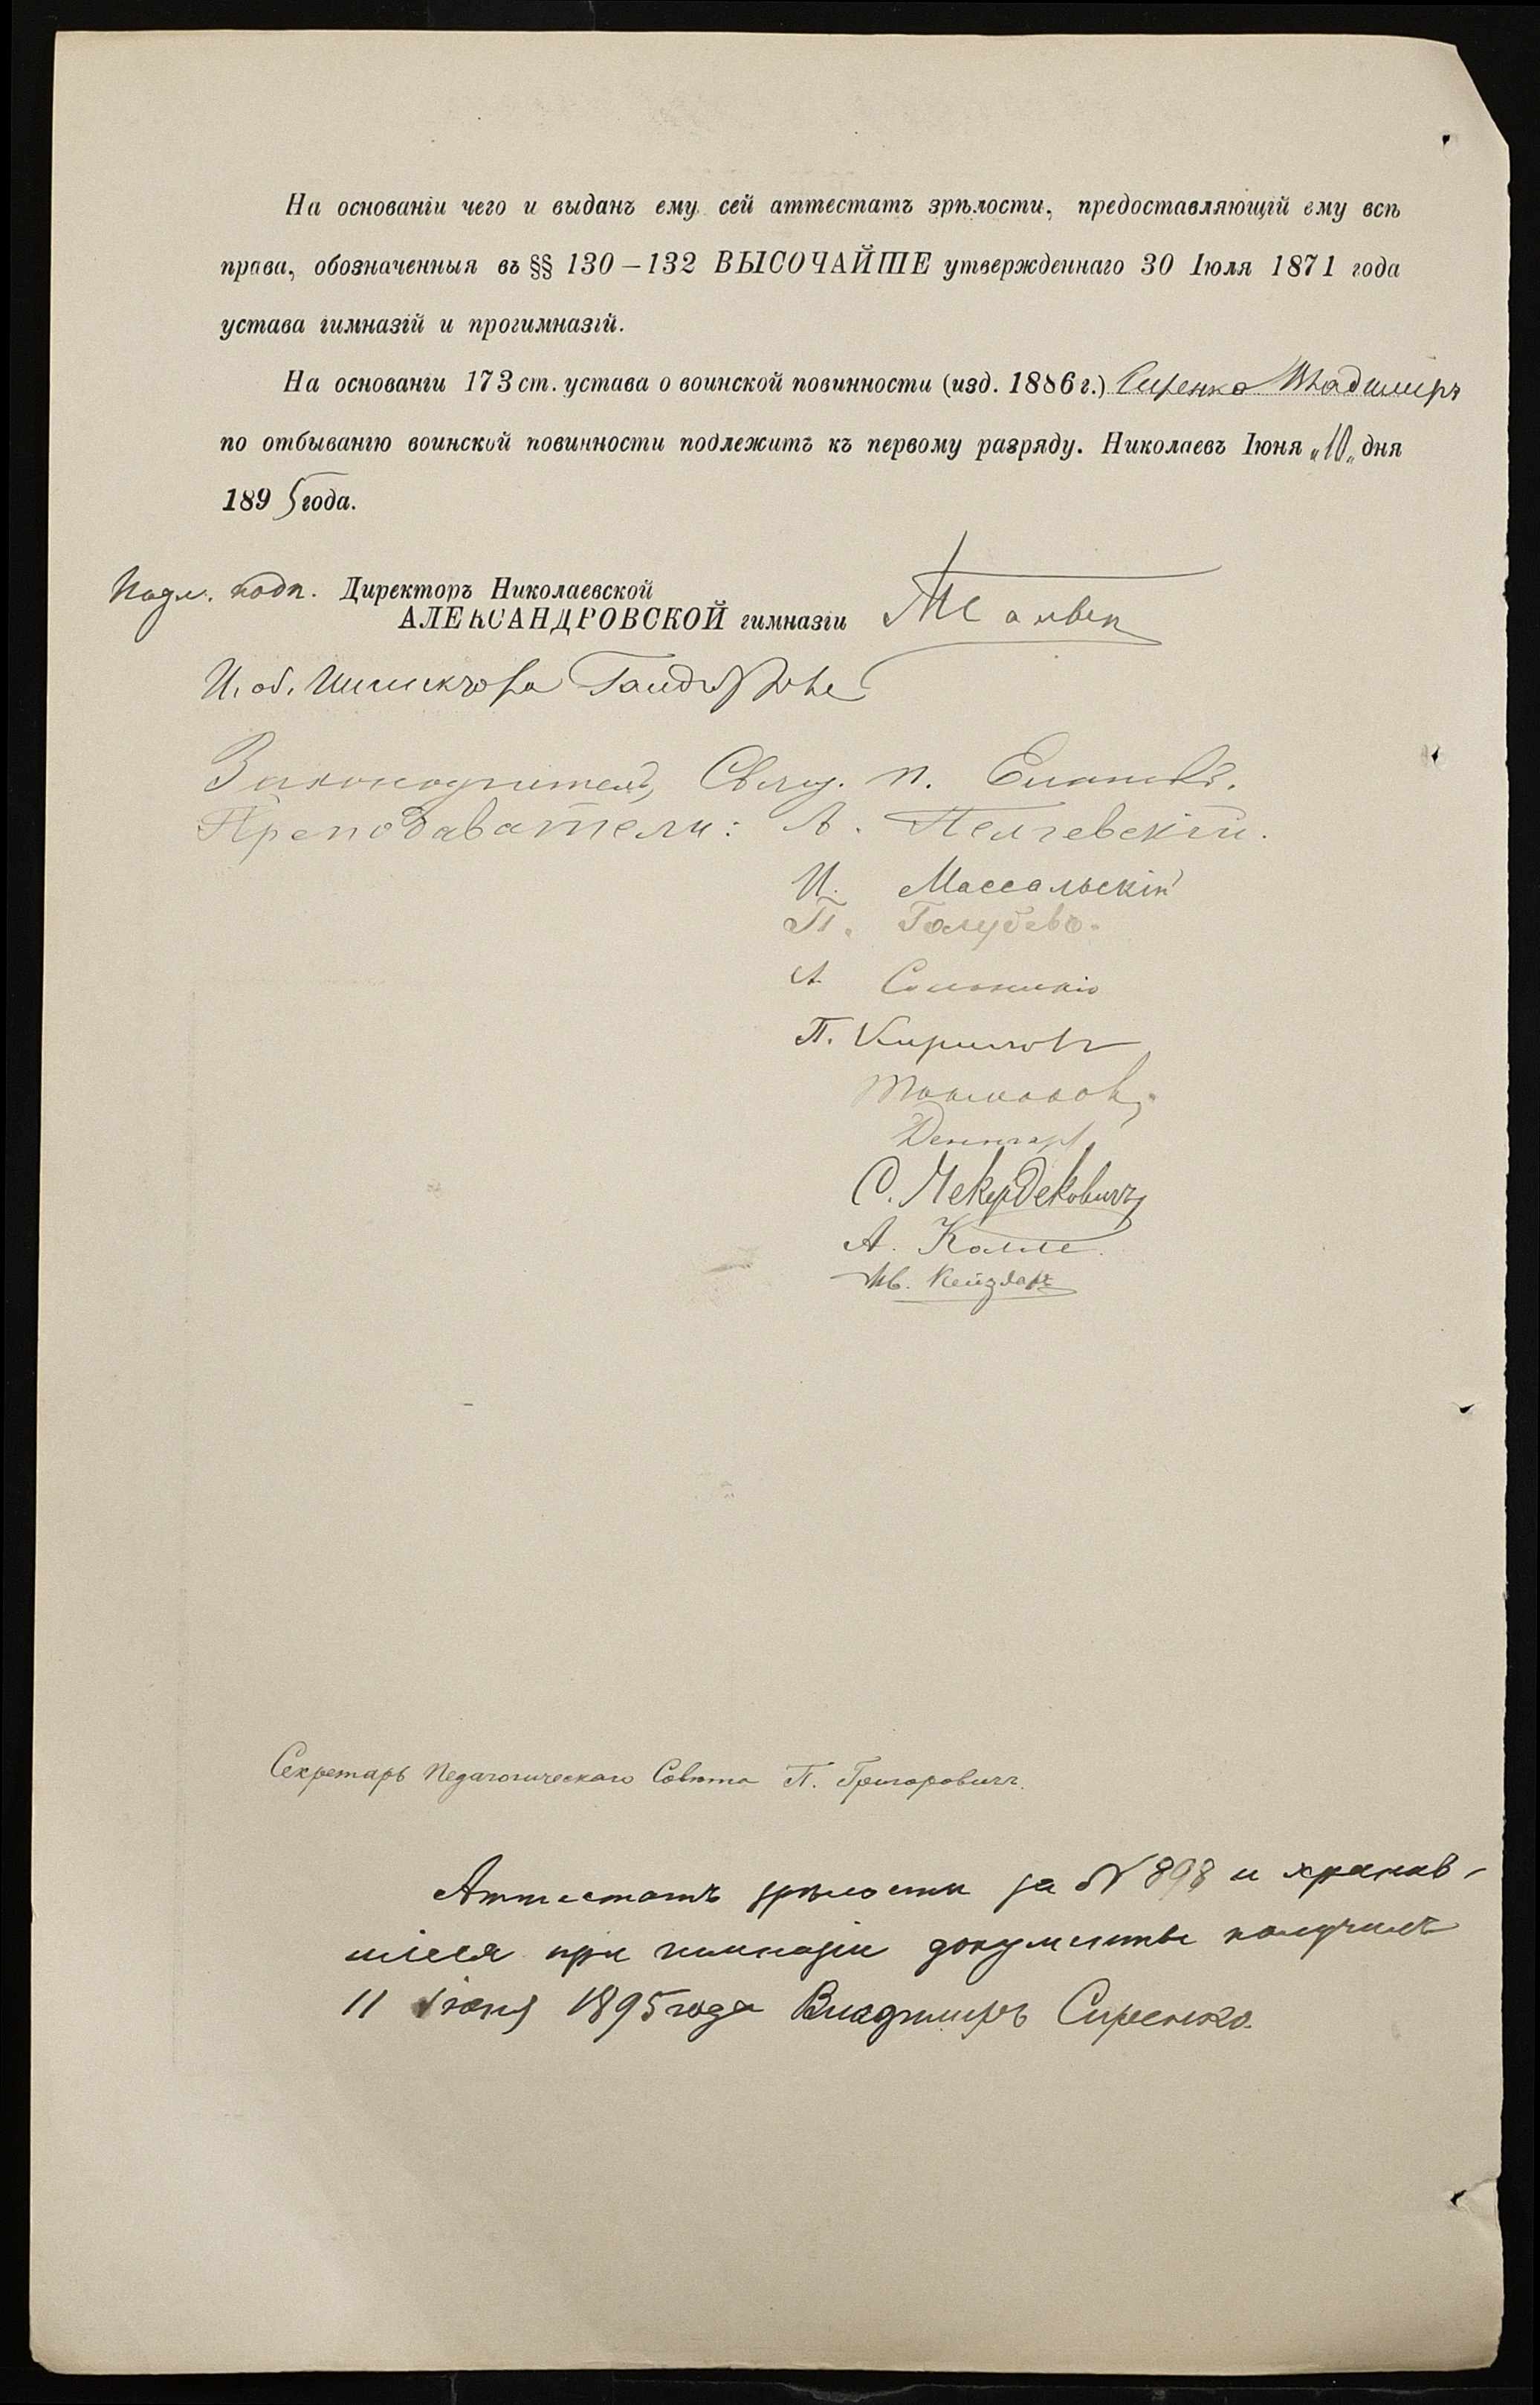 На основаніи чего и выданъ ему сей аттестатъ зрѣлости, предоставляющій ему всѣ
права, обозначенныя въ §§ 130–132 ВЫСОЧАЙШЕ утвержденнаго 30 Іюля 1871 года
устава гимназій и прогимназій.
На основаніи 173 ст. устава о воинской повинности (изд. 1886 г.) Сиренко Владимиръ
по отбыванію воинской повинности подлежитъ къ первому разряду. Николаевъ Іюня „10„ дня
1895 года.
Подл. подп. Директоръ Николаевской
АЛЕКСАНДРОВСКОЙ гимназіи
И. об. Инспектора
Законоучитель, Свящ. П.
Преподаватели: А.
И. Массальскій
П. Голубевъ.
А.
П. Кирилловъ
С.
А. Колле.
Ив. Кейзларъ
Секретарь Педагогическаго Совѣта П. Григоровичъ.
Аттестатъ зрѣлости за N 898 и хранив-
шіеся при гимназіи документы получилъ
11 іюня 1895 года Владимиръ Сиренко.